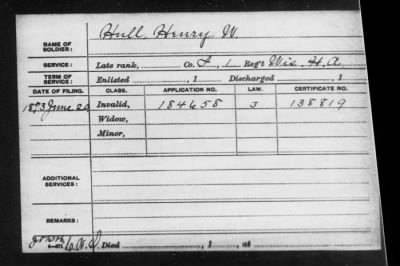 NAME OF SOLDIER: Hull, Henry W.
SERVICE: Late rank, Co. F, 1 Reg't Wis. H.A.
TERM OF SERVICE: Enlisted , 1 Discharged , 1
DATE OF FILING. CLASS. APPLICATION NO. LAW. CERTIFICATE NO.
1873 June 20 Invalid, 184658 J 138819
Widow,
Minor,
ADDITIONAL SERVICES:
REMARKS:
Died , 1 , at